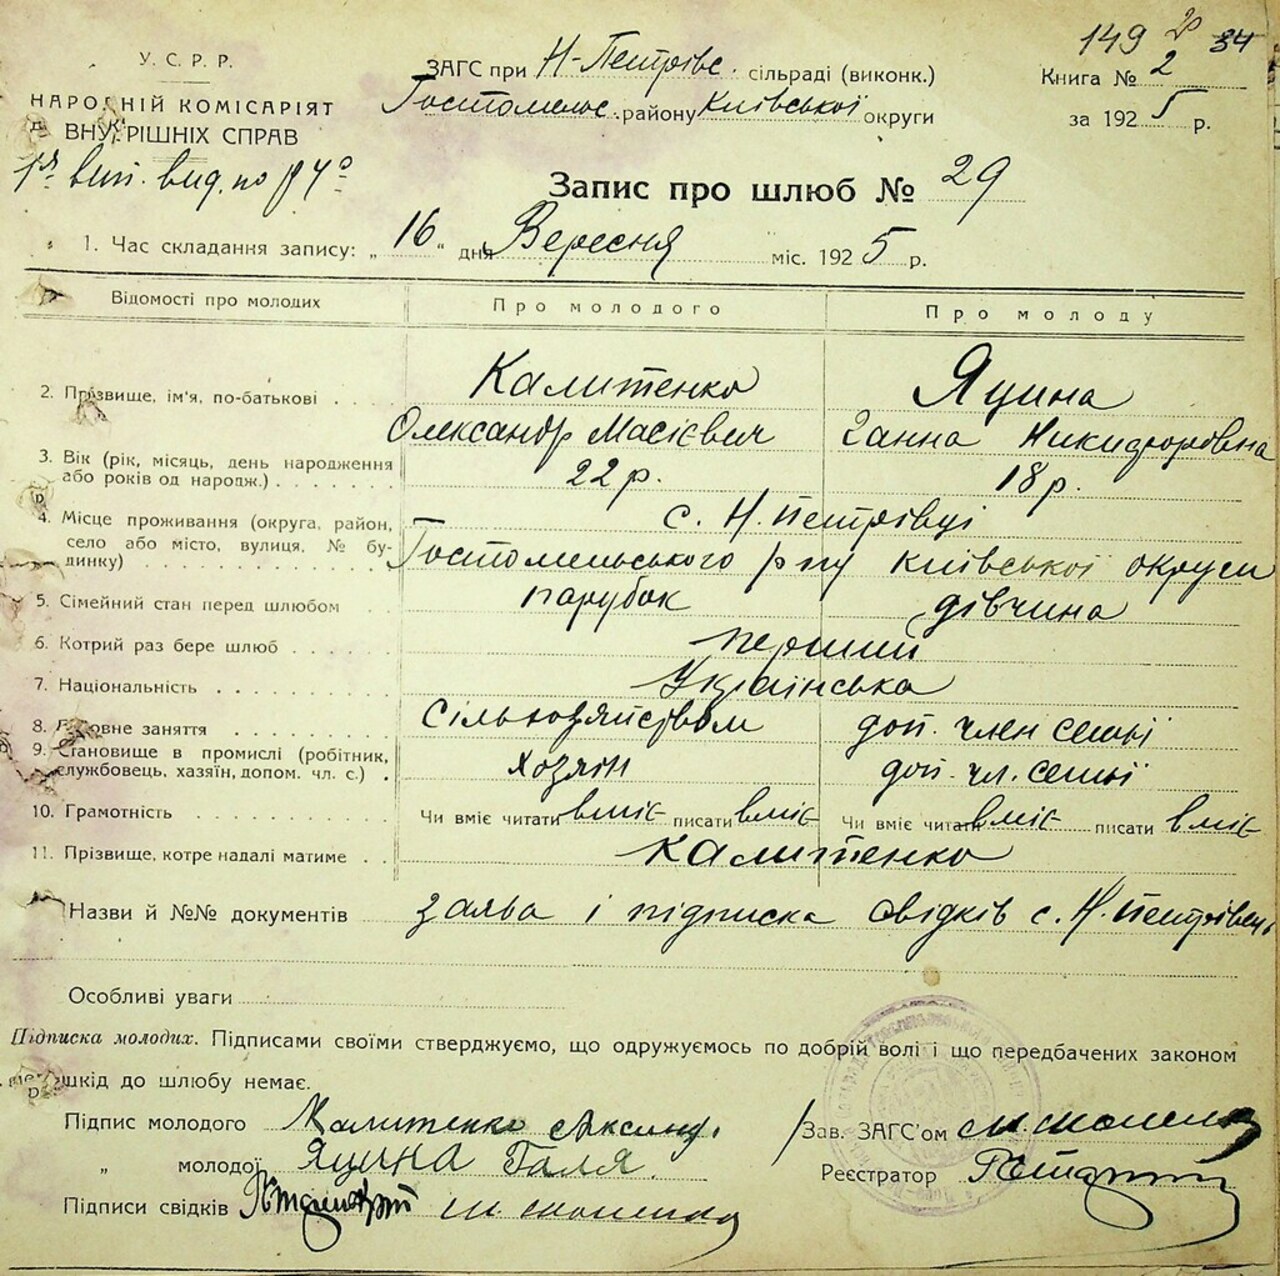 149 34
У. С. Р. Р.
НАРОДНІЙ КОМІСАРІЯТ
ВНУТРІШНІХ СПРАВ
ЗАГС при Н-Петрівс. сільраді (виконк.)
Гостомельс. району Київської округи
Книга № 2
за 1925 р.
Запис про шлюб № 29
1. Час складання запису: „ 16 “ дня Вересня міс. 1925 р.
Відомості про молодих Про молодого Про молоду
2. Прізвище, ім'я, по-батькові Калитенко Яцина
Олександр Масієвич Ганна Никифоровна
3. Вік (рік, місяць, день народження
або років од народж.) 22 р. 18 р.
4. Місце проживання (округа, район, с. Н. Петрівці
село або місто, вулиця, № бу-
динку) Гостомельського р-ну Київської округи
5. Сімейний стан перед шлюбом парубок дівчина
6. Котрий раз бере шлюб перший
7. Національність Українська
8. Головне заняття доп. член семьї
9. Становище в промислі (робітник,
службовець, хазяїн, допом. чл. с.) хозяін доп. чл. семьї
10. Грамотність Чи вміє читати вміє писати вміє Чи вміє читати вміє писати вміє
11. Прізвище, котре надалі матиме Калитенко
Назви й №№ документів заява і підписка свідків с. Н. Петрівець
Особливі уваги
Підписка молодих. Підписами своїми стверджуємо, що одружуємось по добрій волі і що передбачених законом
шкід до шлюбу немає.
Підпис молодого Калитенко
Зав. ЗАГС'ом
„ молодої Яцина Галя
Реєстратор
Підписи свідків